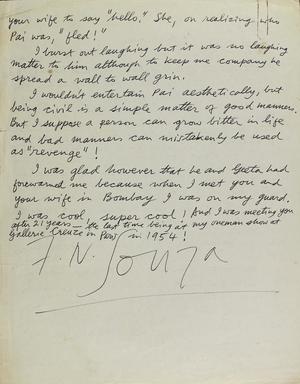 your wife to say "hello." She, on realizing who
Pai was, "fled!"
I burst out laughing but it was no laughing
matter to him although to keep me company he
spread a wall to wall grin.
I wouldn't entertain Pai aesthetically, but
being civil is a simple matter of good manners.
But I suppose a person can grow bitter in life
and bad manners can mistakenly be used
as "revenge"!
I was glad however that he and Geeta had
forewarned me because when I met you and
your wife in Bombay I was on my guard.
I was cool, super cool! And I was meeting you
after 21 years — the last time being at my oneman show at
Gallerie Creuze in Paris in 1954!
F. N. Souza